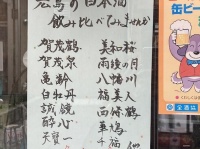 広島の日本酒
飲み比べてみませんか
賀茂鶴
賀茂泉
亀齢
白牡丹
誠鏡
酔心
美和桜
雨後の月
八幡川
福美人
西條鶴
華鳩
千福
他
缶ビー